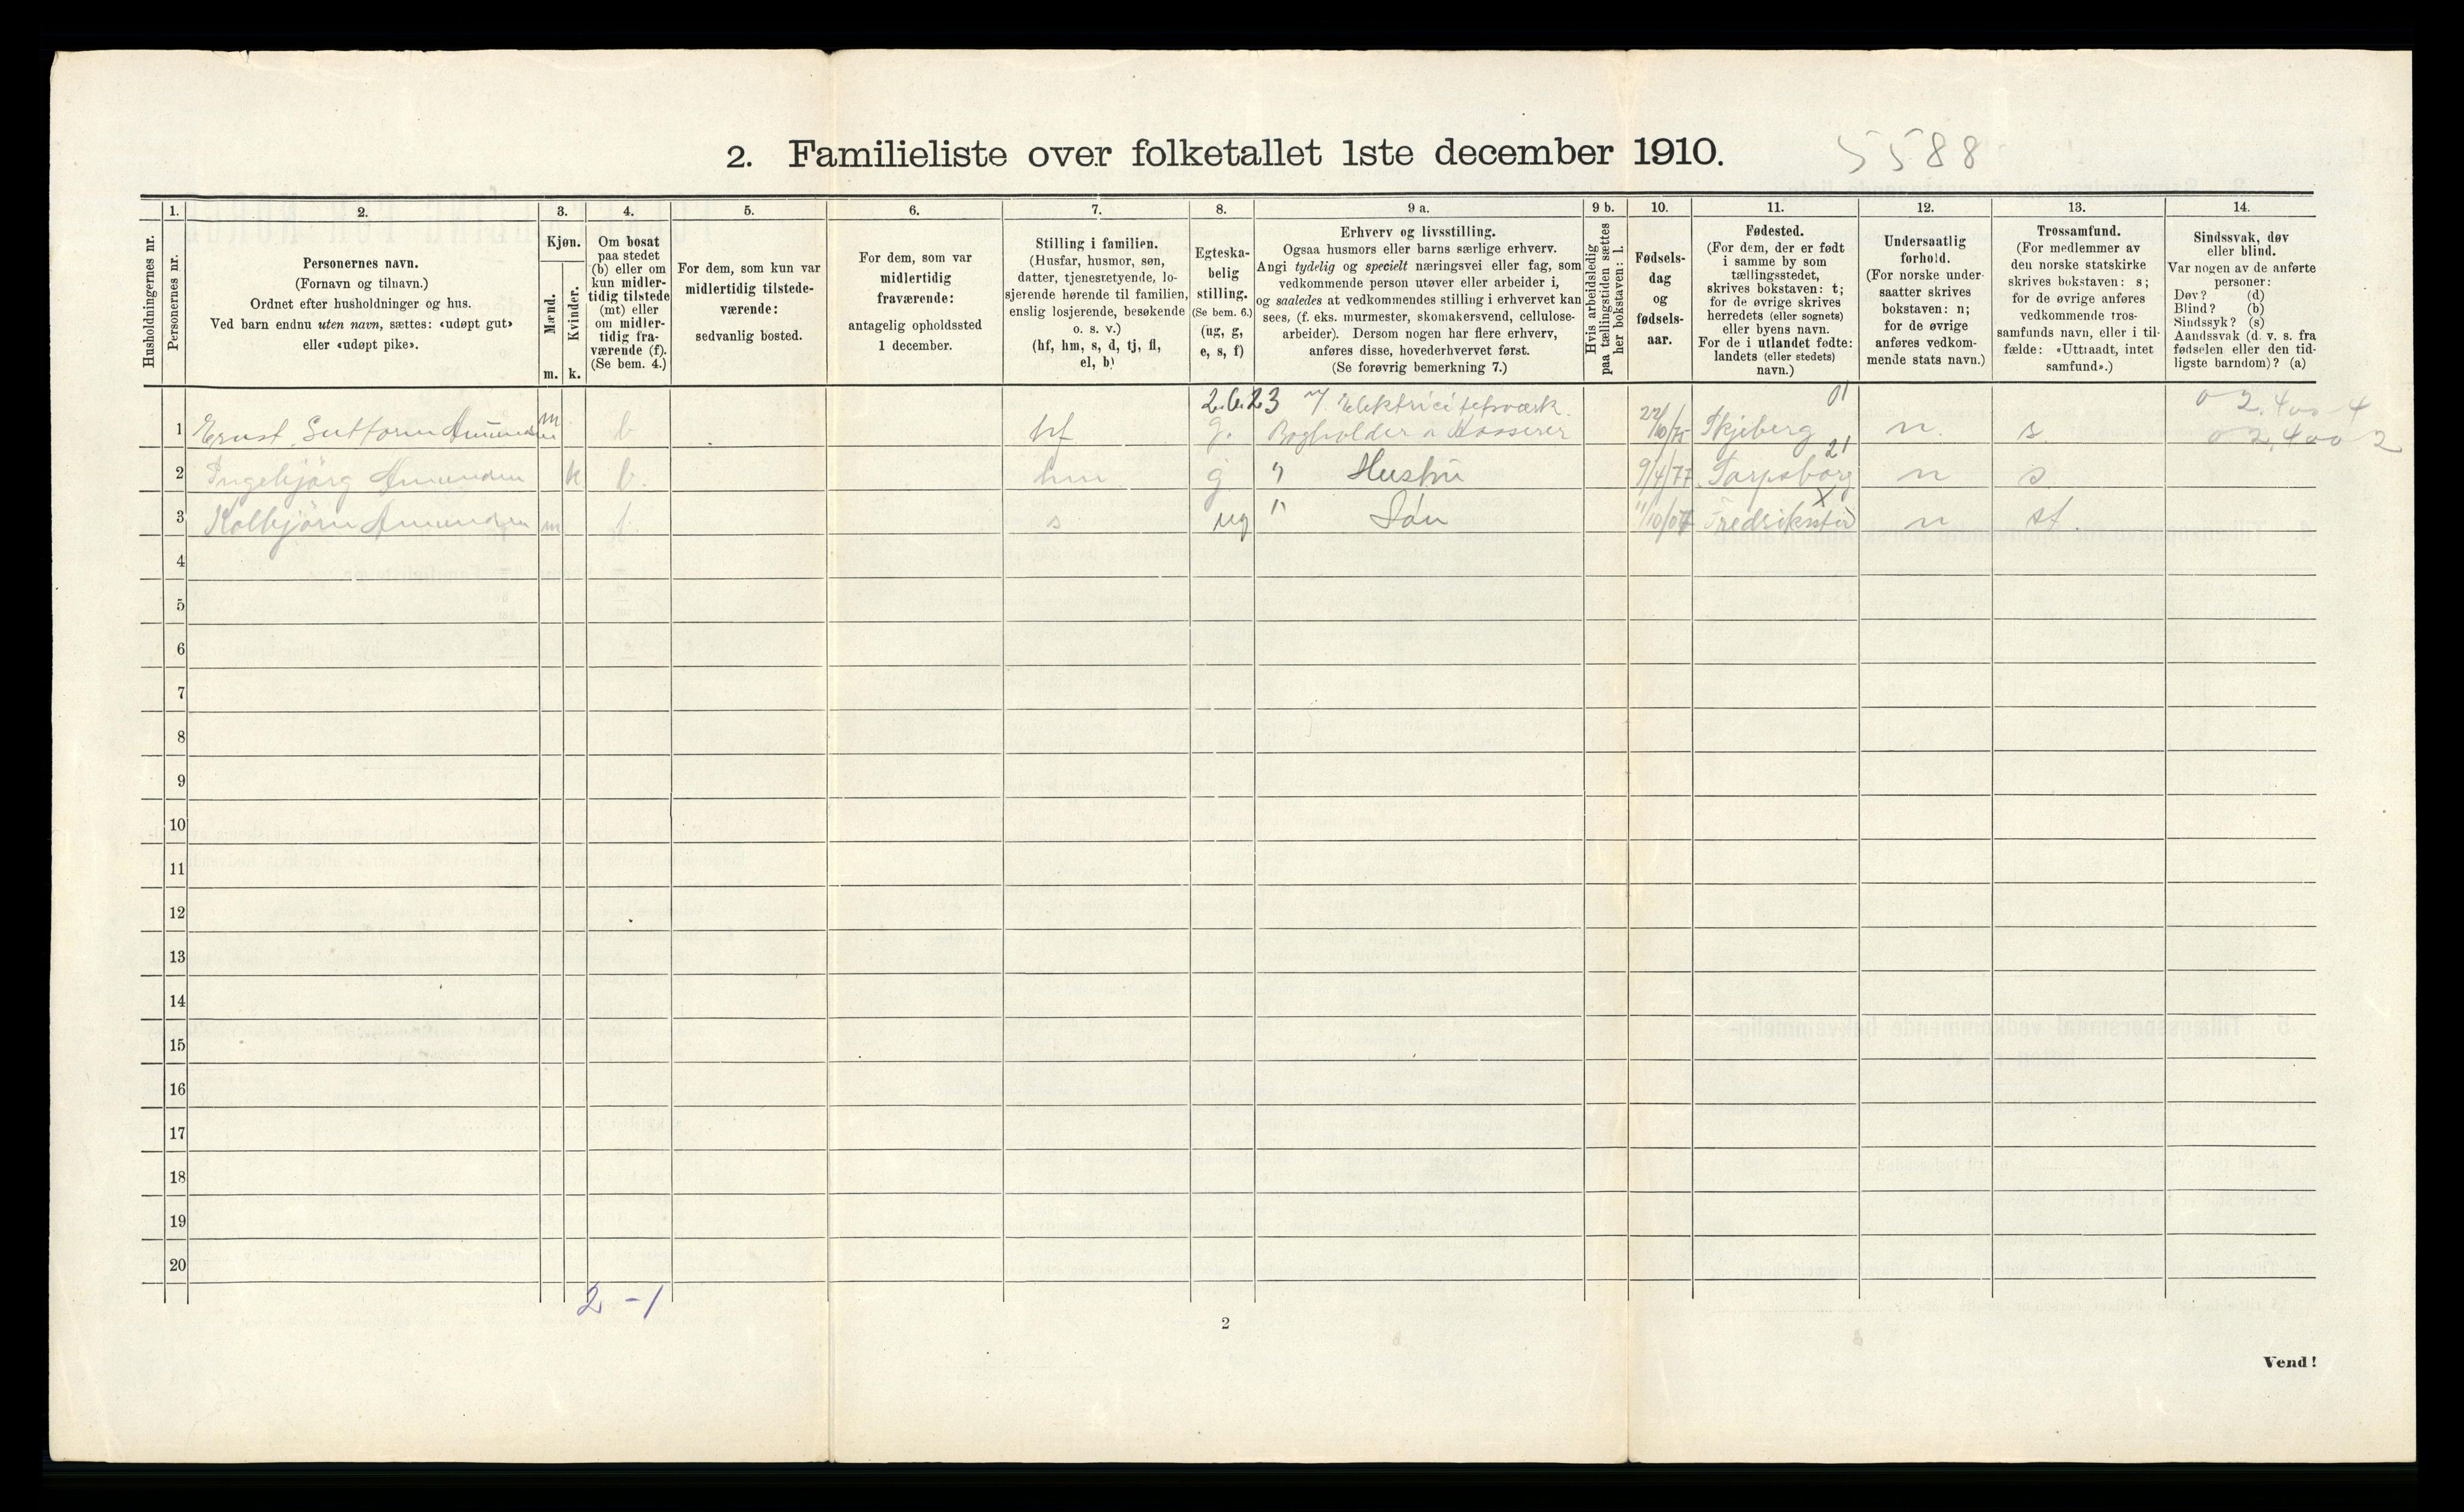 2. Familieliste over folketallet 1ste december 1910.
5588
Husholdningernes nr.
1.
Personernes nr.
2.
Personernes navn.
(Fornavn og tilnavn.)
Ordnet efter husholdninger og hus.
Ved barn endnu uten navn, sættes: «udøpt gut»
eller «udøpt pike».
3.
Kjøn.
Mænd.
Kvinder.
m. k.
4.
Om bosat
paa stedet
(b) eller om
kun midler-
tidig tilstede
(mt) eller
om midler-
tidig fra-
værende (f).
(Se bem. 4.)
5.
For dem, som kun var
midlertidig tilstede-
værende:
sedvanlig bosted.
6.
For dem, som var
midlertidig
fraværende:
antagelig opholdssted
1 december.
7.
Stilling i familien.
(Husfar, husmor, søn,
datter, tjenestetyende, lo-
sjerende hørende til familien,
enslig losjerende, besøkende
o. s. v.)
(hf, hm, s, d, tj, fl,
el, b)
8.
Egteska-
belig
stilling.
(Se bem. 6.)
(ug, g,
e, s, f)
9 a.
Erhverv og livsstilling.
Ogsaa husmors eller barns særlige erhverv.
Angi tydelig og specielt næringsvei eller fag, som
vedkommende person utøver eller arbeider i,
og saaledes at vedkommendes stilling i erhvervet kan
sees, (f. eks. murmester, skomakersvend, cellulose-
arbeider). Dersom nogen har flere erhverv,
anføres disse, hovederhvervet først.
(Se forøvrig bemerkning 7.)
9 b.
Hvis arbeidsledig
paa tællingstiden sættes
her bokstaven: l.
10.
Fødsels-
dag
og
fødsels-
aar.
11.
Fødested.
(For dem, der er født
i samme by som
tællingsstedet,
skrives bokstaven: t;
for de øvrige skrives
herredets (eller sognets)
eller byens navn.
For de i utlandet fødte:
landets (eller stedets)
navn.)
12.
Undersaatlig
forhold.
(For norske under-
saatter skrives
bokstaven: n;
for de øvrige
anføres vedkom-
mende stats navn.)
13.
Trossamfund.
(For medlemmer av
den norske statskirke
skrives bokstaven: s;
for de øvrige anføres
vedkommende tros-
samfunds navn, eller i til-
fælde: «Uttraadt, intet
samfund».)
14.
Sindssvak, døv
eller blind.
Var nogen av de anførte
personer:
Døv? (d)
Blind? (b)
Sindssyk? (s)
Aandssvak (d. v. s. fra
fødselen eller den tid-
ligste barndom)? (a)
2.6.23 Elektricitetsværk. 01 0 2.400-4
1 Ernst Guttorm Amundsen m b hf g. Bogholder o Kasserer 22/10/75 Skjeberg n. s. 0 2.400 2
21
2 Ingebjörg Amundsen k b. hm g " Hustru 9/4/77 Sarpsborg n s
X
3 Kolbjörn Amundsen m b s ug " Søn 11/10/07 Fredriksstad n st.
4
5
6
7
8
9
10
11
12
13
14
15
16
17
18
19
20
2 - 1
2
Vend!